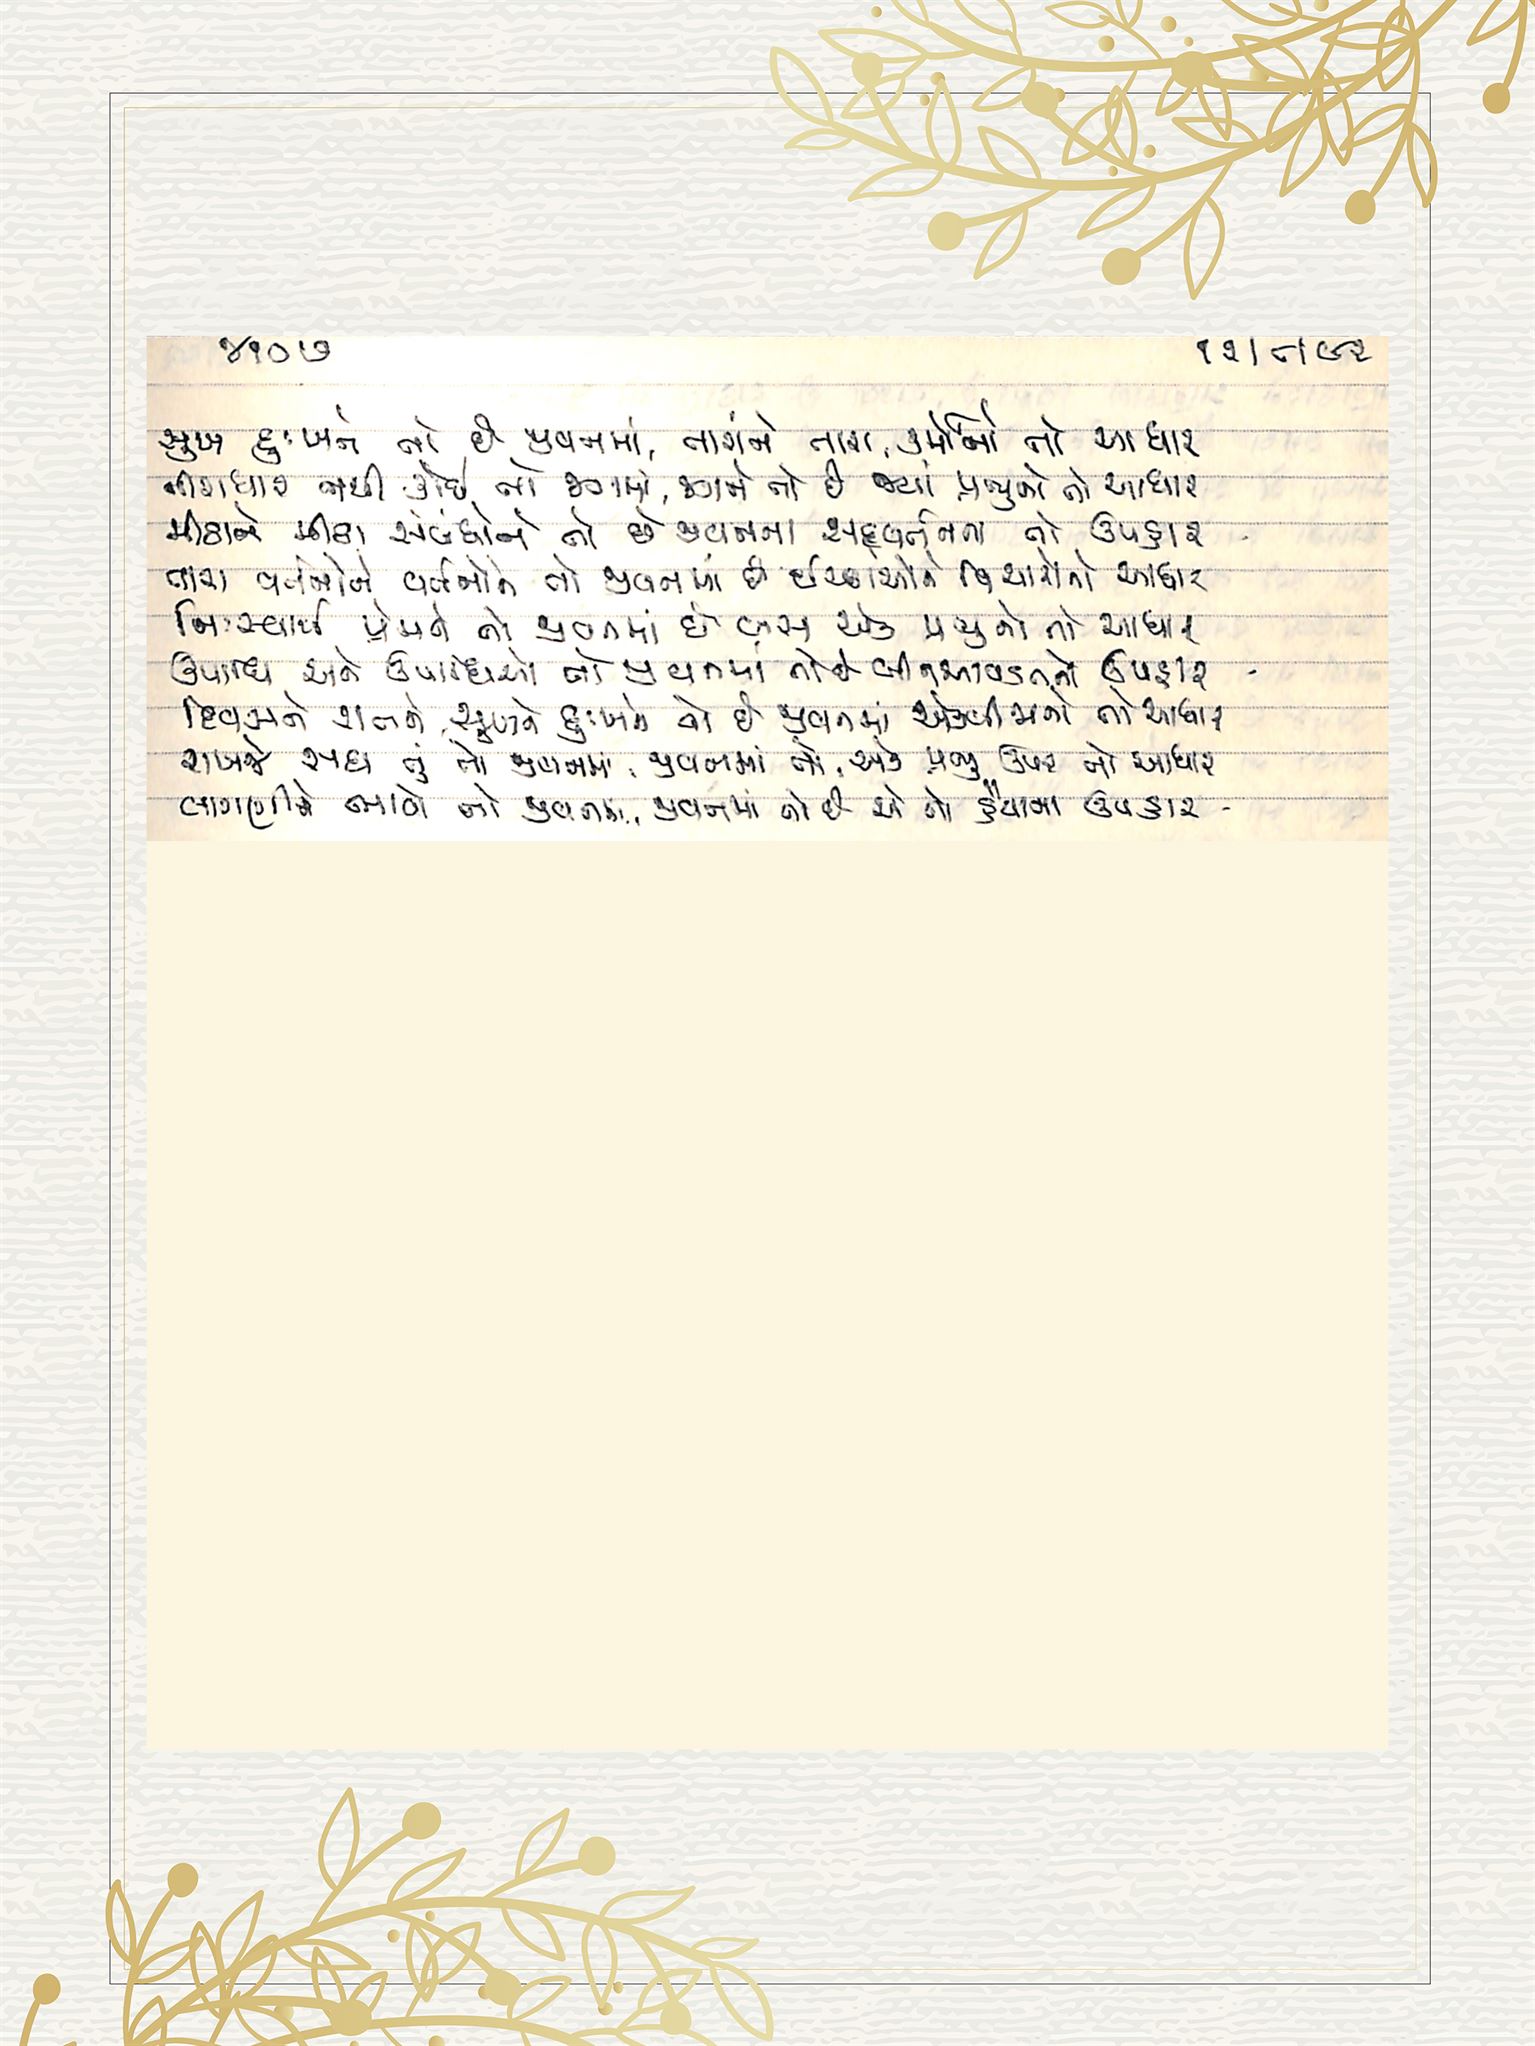 ૪૧૦૭ ૧૨/૮/૯૨
સુખ દુઃખને તો છે જીવનમાં, તારાંને તારા, કર્મોનો તો આધાર
નીરાધાર નથી કોઈ તો જગમાં, જગને તો છે જ્યાં પ્રભુનો તો આધાર
મીઠાને મીઠા સંબંધોને તો છે જીવનના સદ્દવર્તનના તો ઉપકાર
તારા વર્તનોને વર્તનોને તો જીવનમાં છે ઈચ્છાઓને વિચારોનો આધાર
નિઃસ્વાર્થ પ્રેમને તો જીવનમાં છે બસ એક પ્રભુનો તો આધાર
ઉપાધિ અને ઉપાધિઓ તો જીવનમાં તો છે બીનઆવડતનો ઉપકાર
દિવસને રાતને, સુખને દુઃખને તો છે જીવનમાં એકબીજાનો તો આધાર
રાખજે સદા તું તો જીવનમાં, જીવનમાં તો, એક પ્રભુ ઉપર તો આધાર
લાગણીને ભાવો તો જીવનમાં, જીવનમાં તો છે એ તો હૈયાના ઉપકાર